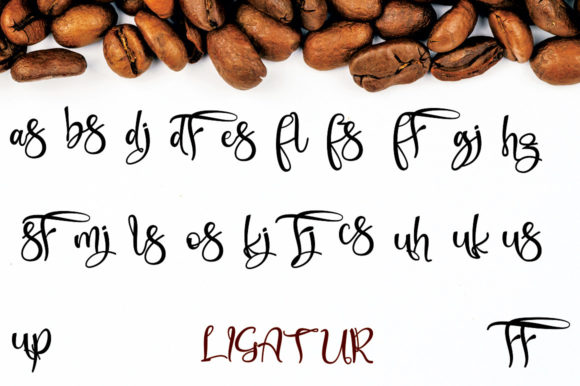 as bs dj df es fl fs ff gj hz
sf mj ls os kj fj cs uh uk us
up LIGATUR ff